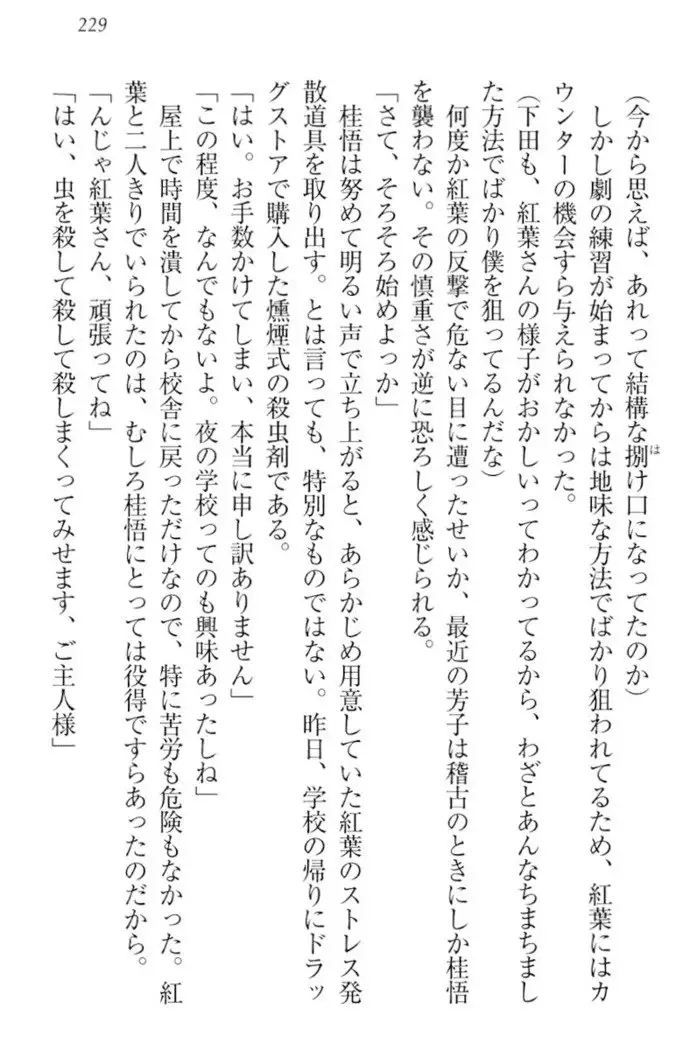 229
(今から思えば、あれって結構な捌け口になってたのか)
は
しかし劇の練習が始まってからは地味な方法でばかり狙われてるため、紅葉にはカ
ウンターの機会すら与えられなかった。
(下田も、紅葉さんの様子がおかしいってわかってるから、わざとあんなちまちまし
た方法でばかり僕を狙ってるんだな)
何度か紅葉の反撃で危ない目に遭ったせいか、最近の芳子は稽古のときにしか桂悟
を襲わない。その慎重さが逆に恐ろしく感じられる。
「さて、そろそろ始めよっか」
桂悟は努めて明るい声で立ち上がると、あらかじめ用意していた紅葉のストレス発
散道具を取り出す。とは言っても、特別なものではない。昨日、学校の帰りにドラッ
グストアで購入した燻煙式の殺虫剤である。
「はい。お手数かけてしまい、本当に申し訳ありません」
「この程度、なんでもないよ。夜の学校ってのも興味あったしね」
屋上で時間を潰してから校舎に戻っただけなので、特に苦労も危険もなかった。紅
葉と二人きりでいられたのは、むしろ桂悟にとっては役得ですらあったのだから。
「んじゃ紅葉さん、頑張ってね」
「はい、虫を殺して殺して殺しまくってみせます、ご主人様」